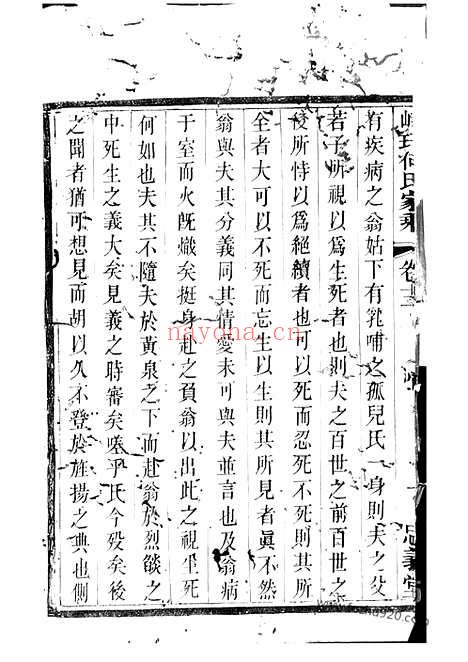 有疾病之翁姑下有乳哺之孤兒氏一身則夫之父
若子所視以爲生死者也則夫之百世之前百世之
後所恃以爲絕續者也可以死而忍死不死則其所
全者大可以不死而忘生以生則其所見者眞不然
翁與夫其分義同其情愛未可與夫並言也及翁病
于室而火旣熾矣挺身赴之負翁以出此之視生死
何如也夫其不隨夫於黃泉之下而赴翁於烈燄之
中死生之義大矣見義之時審矣嗟乎氏今歿矣後
之聞者猶可想見而胡以久不登於旌揚之典也側
何氏家乘
卷十三
忠義堂
nayona.cn